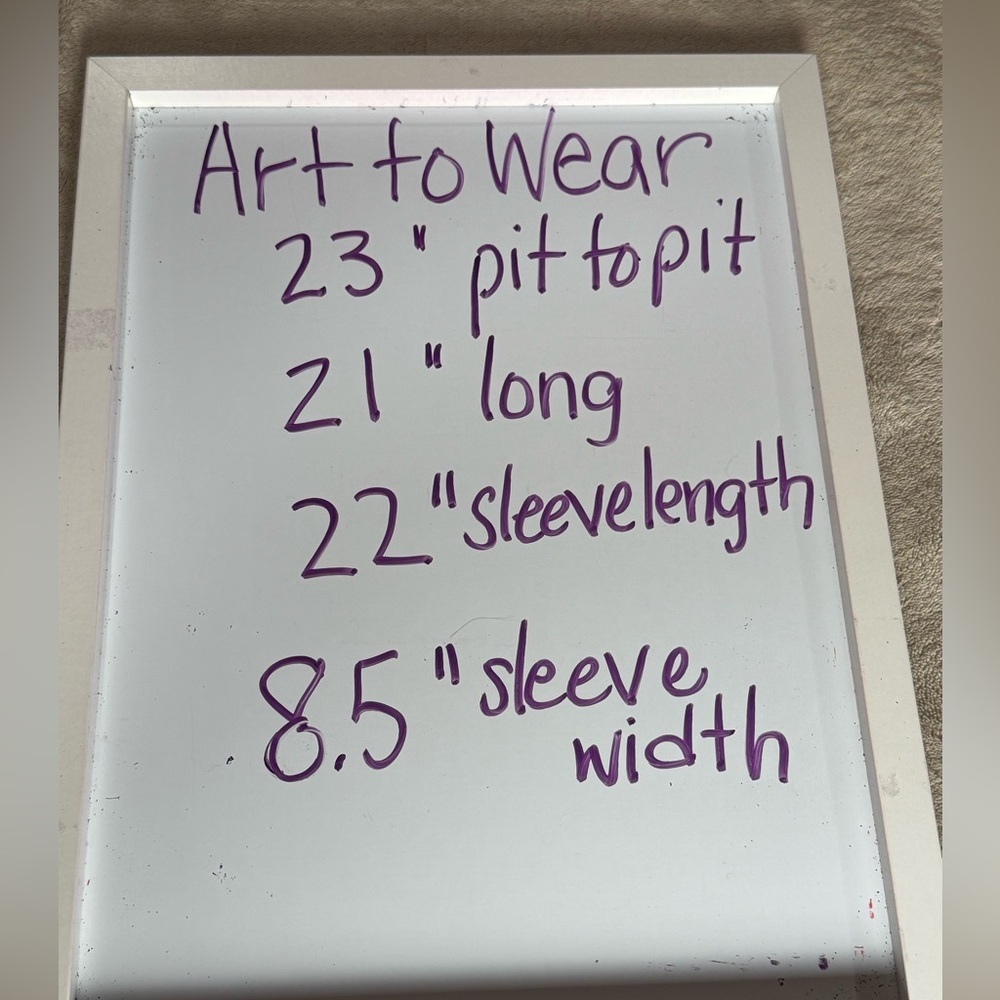 Art to Wear
23" pit to pit
21" long
22" sleeve length
8.5" sleeve
width